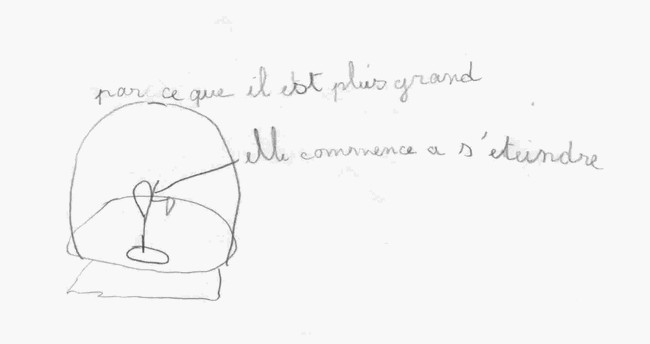 par ce que il est plus grand
elle commence a s'eteindre